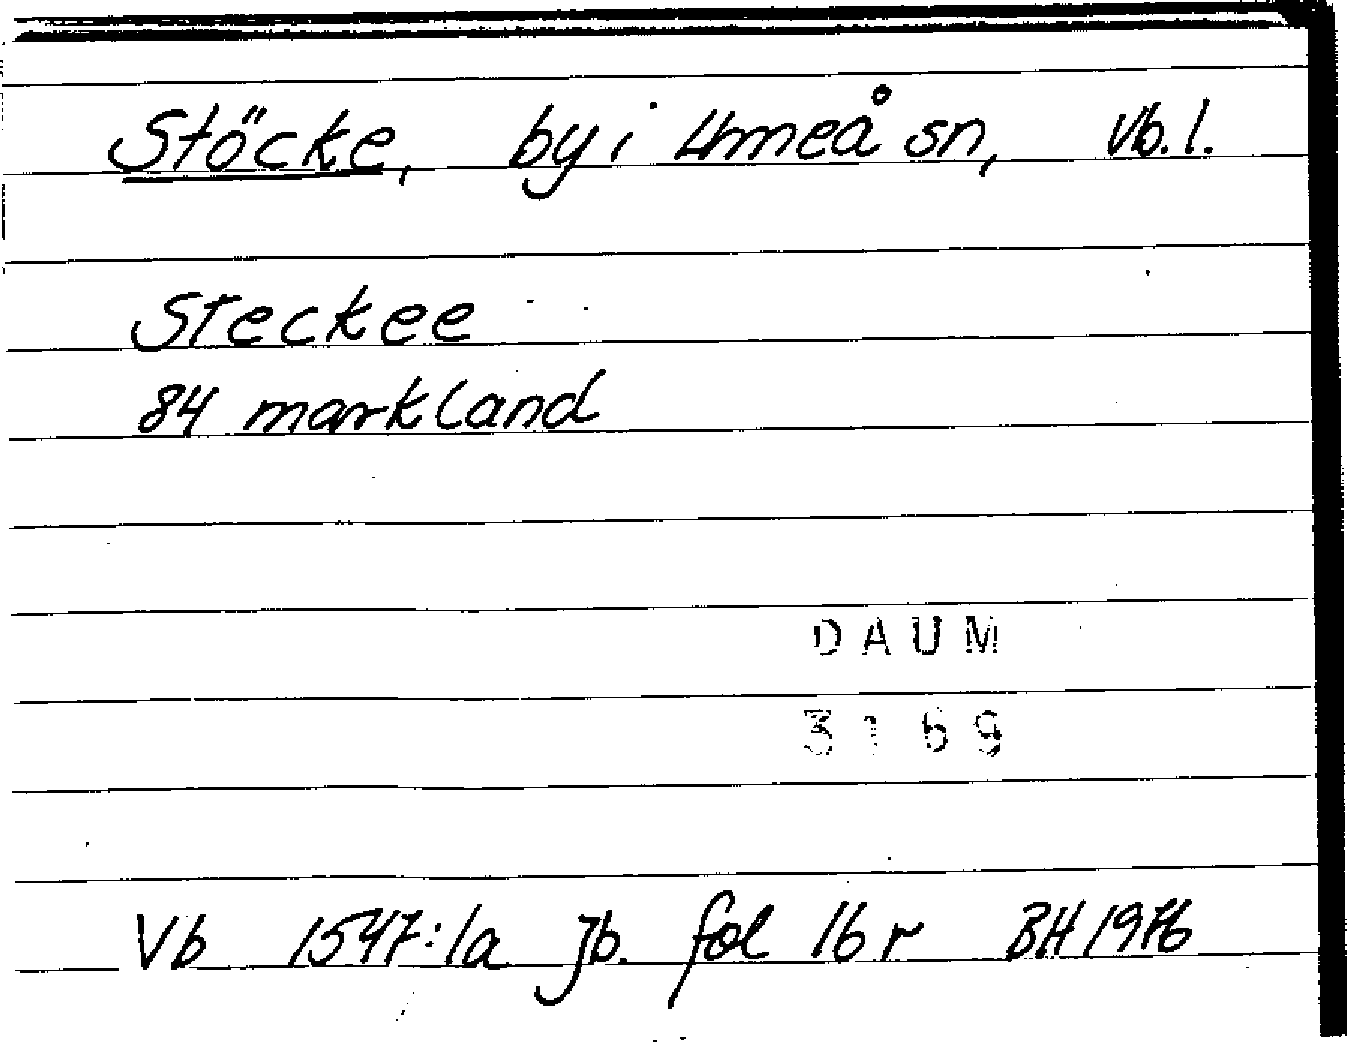 Stöcke, by i Umeå sn, Vb. l.
Steckee
84 markland
DAUM
3169
Vb 1547:1a jb. fol 16 r BH 1976